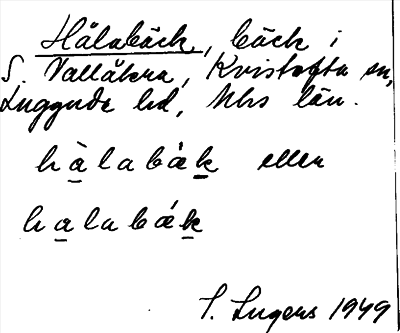 Hålabäck, bäck i
S. Vallåkra, Kvistofta sn,
Luggude hd, Mhs län.
hàlabák eller
halabák
S. Ingers 1949